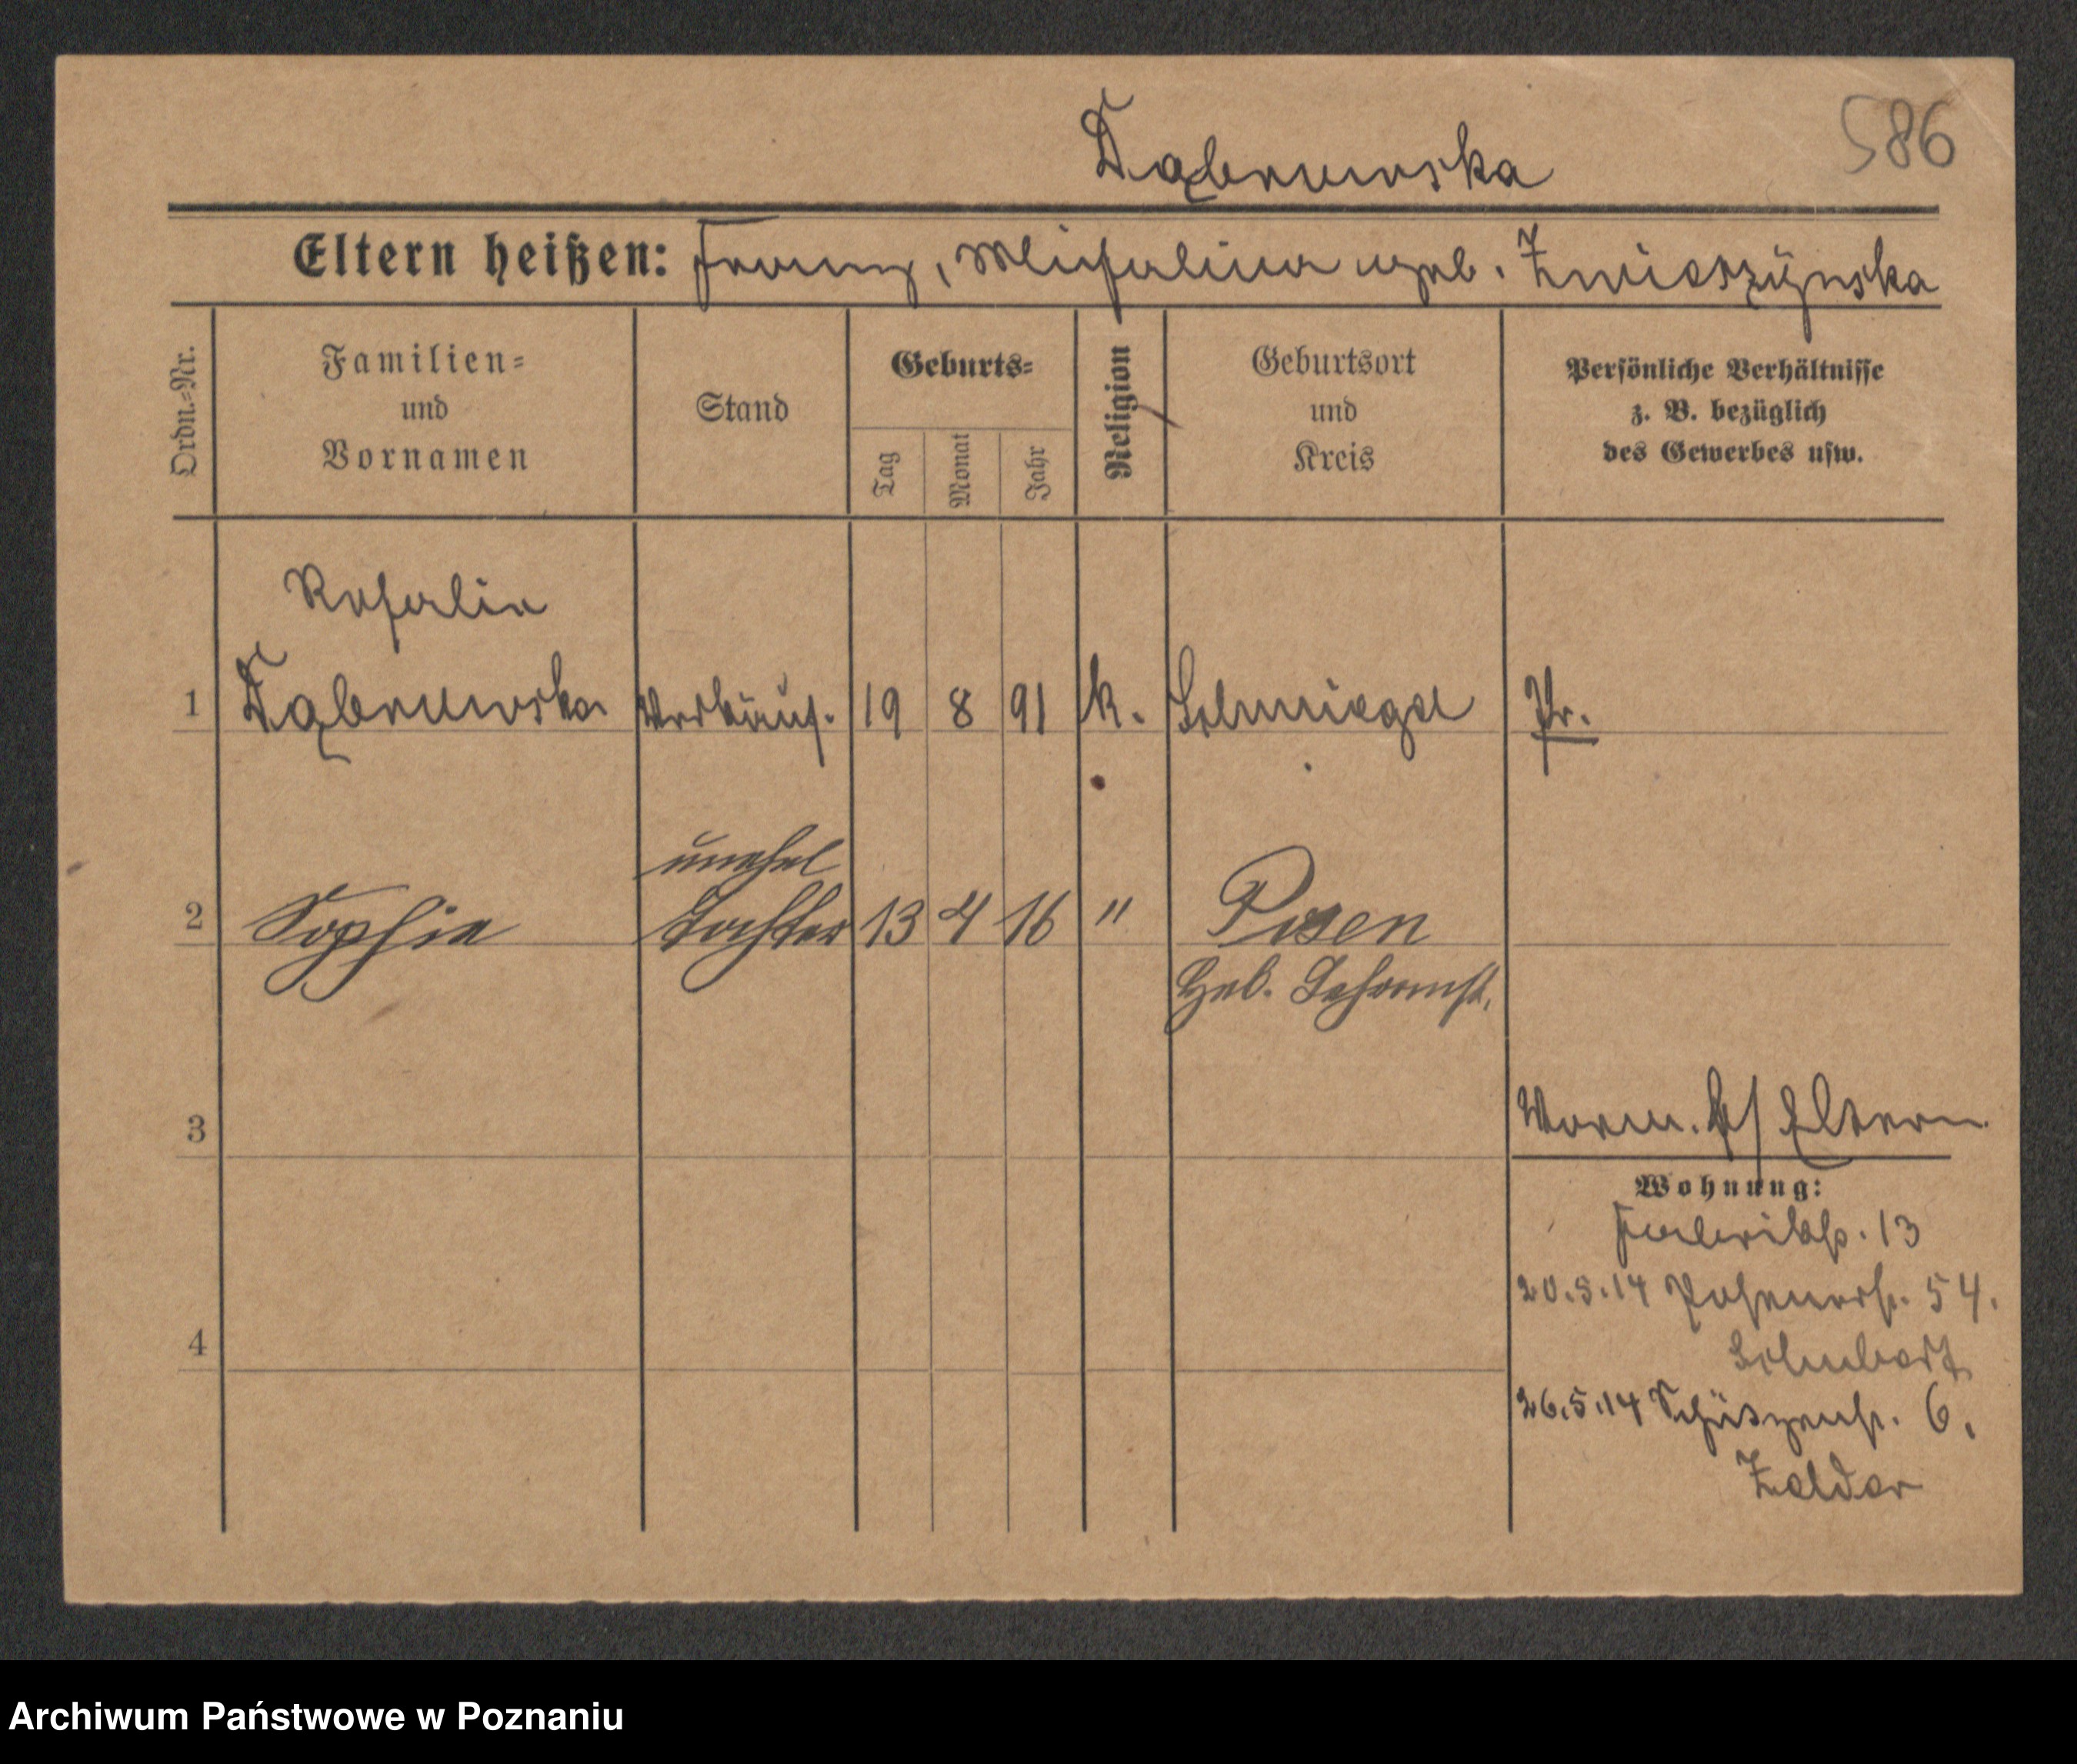 586
Dąbrowska
Eltern heißen: Franz, Michalina geb. Zwierzyńska
Ordn.-Nr.
Familien-
und
Vornamen
Stand
Geburts-
Tag
Monat
Jahr
Religion
Geburtsort
und
Kreis
Persönliche Verhältnisse
z. B. bezüglich
des Gewerbes usw.
Rosalia
1 Dąbrowska Verkäuf. 19 8 91 k. Schmiegel Pr.
unehel
2 Sophie Tochter 13 4 16 " Posen
Heb. Lehranst.
3
Vorm. b/ Eltern
Wohnung:
Fabrikstr. 13
20.5.14 Posenerstr. 54.
4
Schubert
26.5.14 Schützenstr. 6.
Archiwum Państwowe w Poznaniu